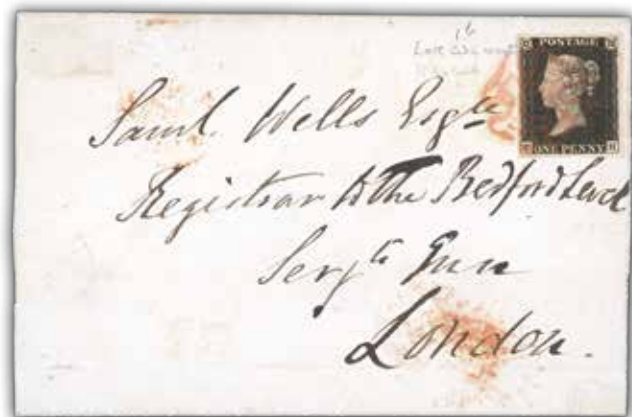 POSTAGE
ONE PENNY
Saml. Wells Esqre
Registrar to the Bedford Level
Serjts Inn
London.